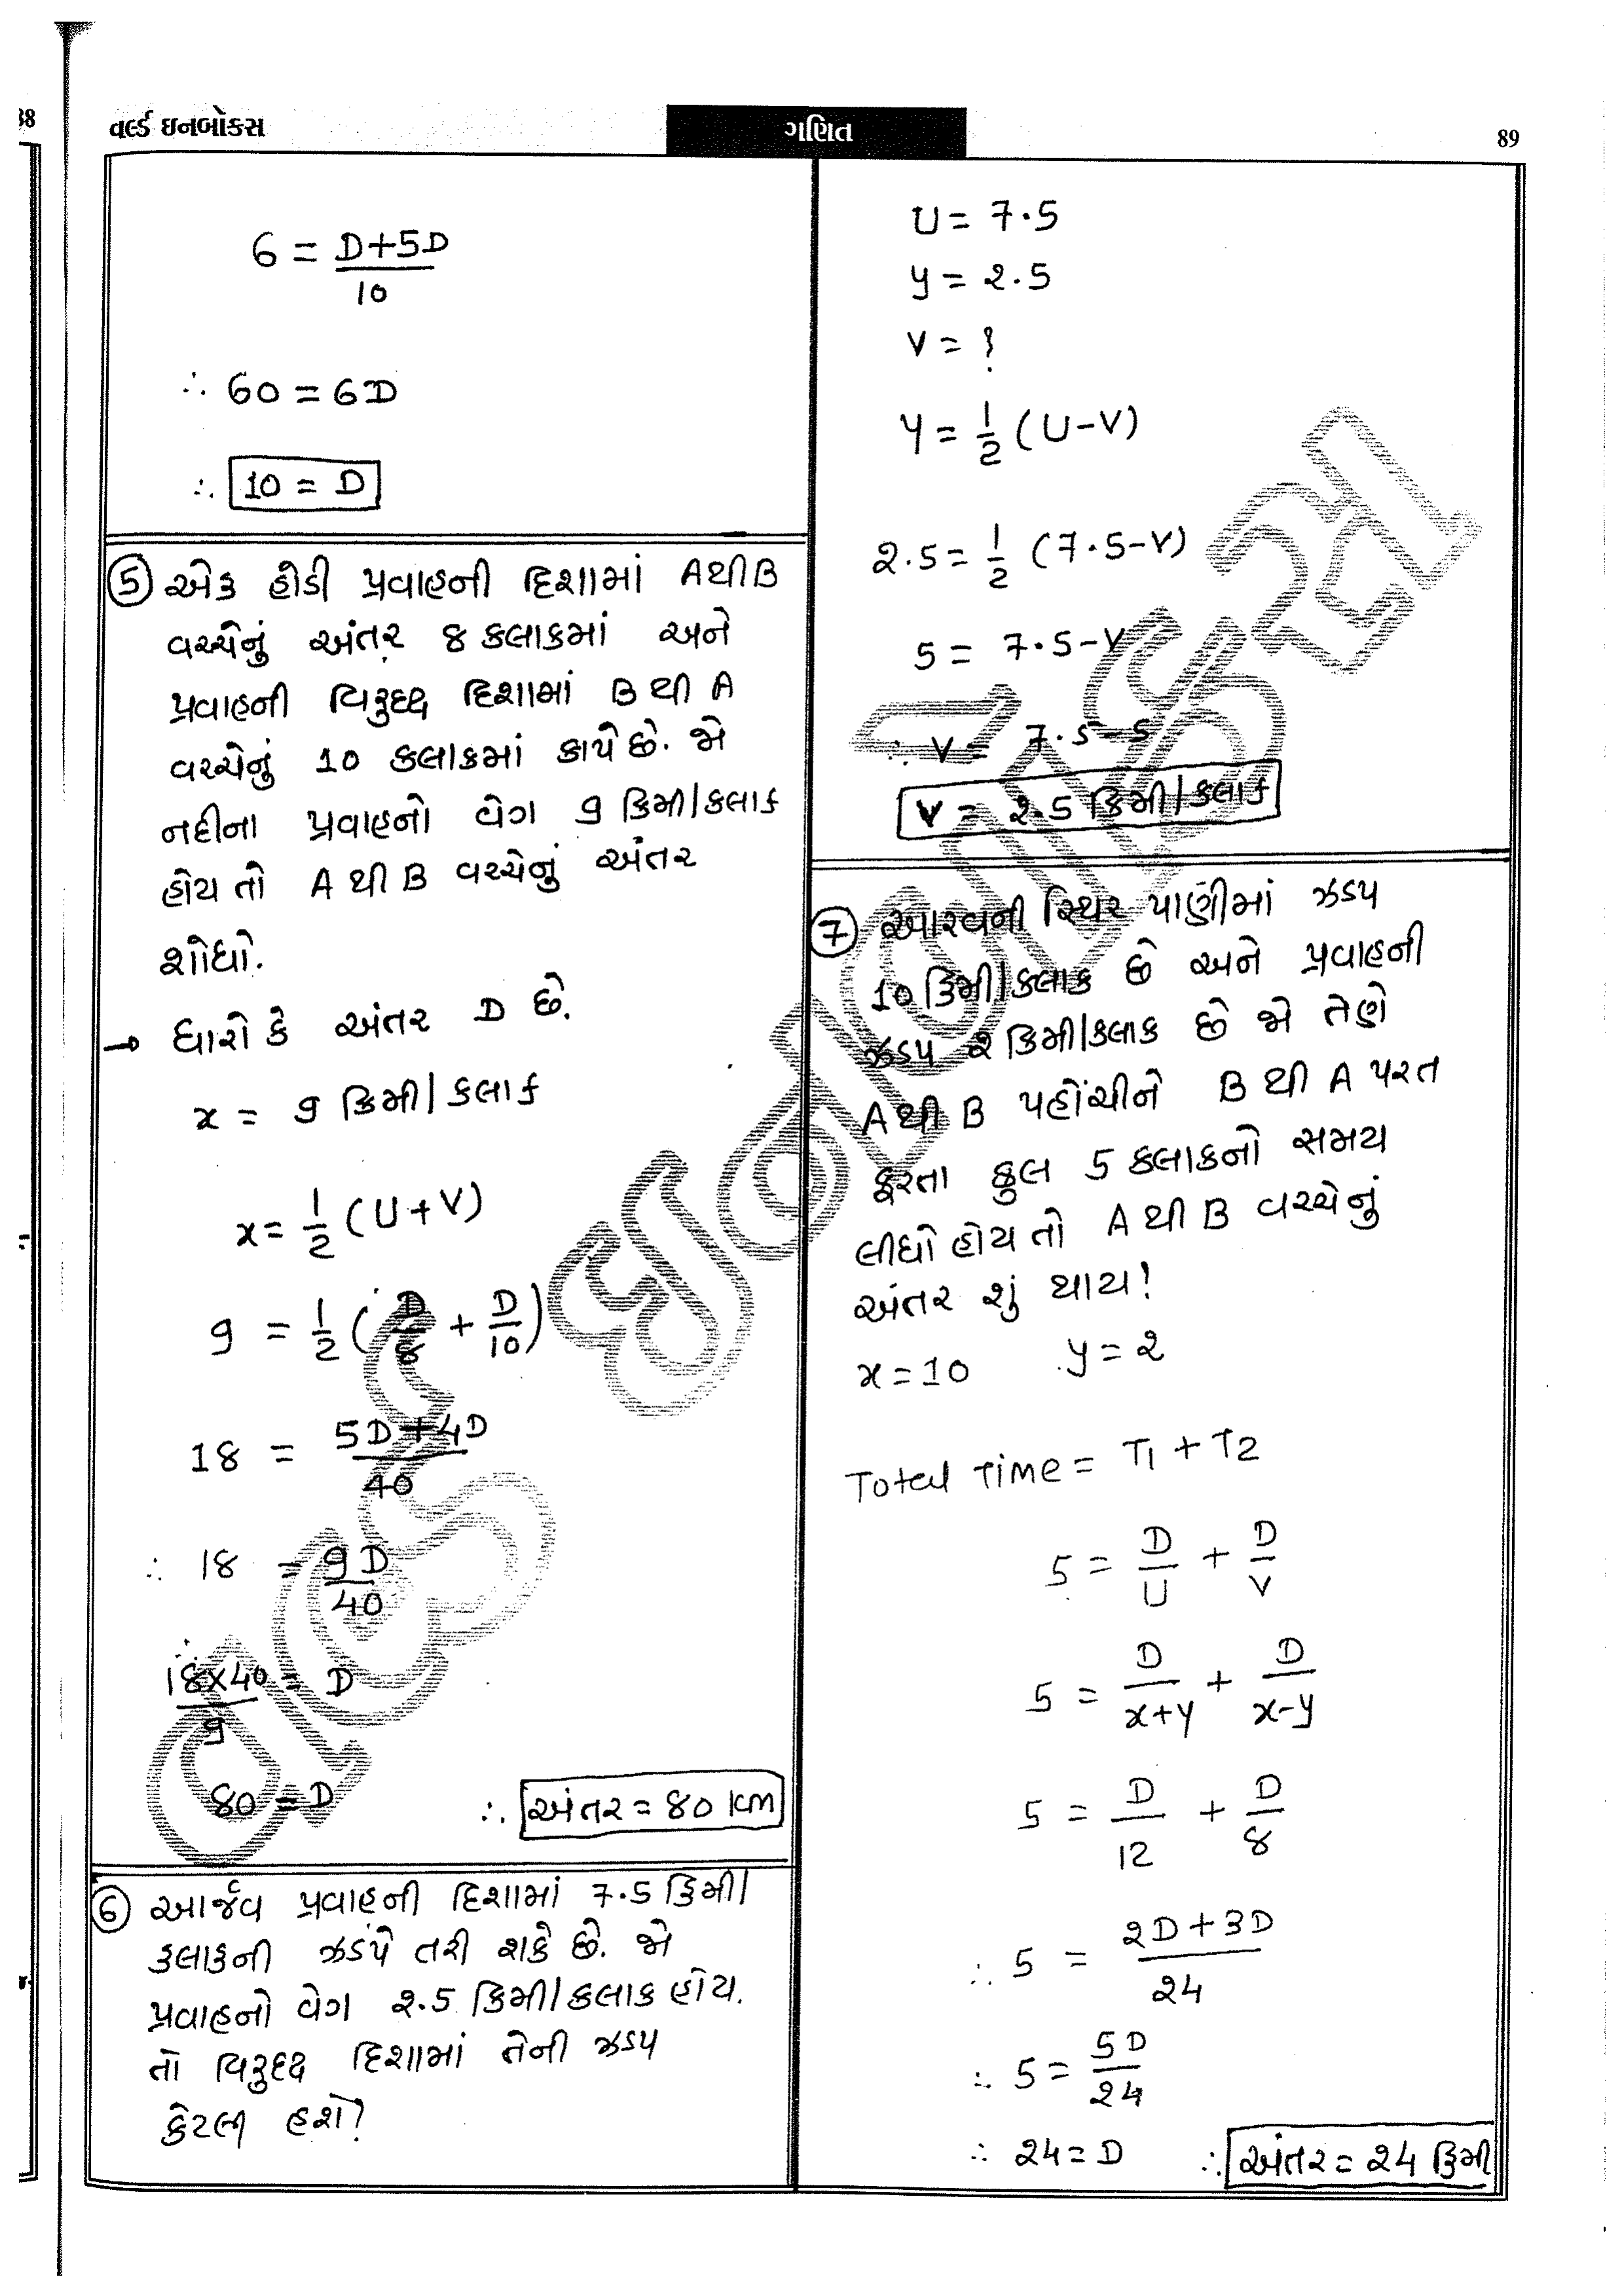 38
વર્લ્ડ ઇનબોક્સ
ગણિત
89
6 = D+5D
10
∴ 60 = 6D
∴ 10 = D
5 એક હોડી પ્રવાહની દિશામાં A થી B
વચ્ચેનું અંતર 8 કલાકમાં અને
પ્રવાહની વિરુદ્ધ દિશામાં B થી A
વચ્ચેનું 10 કલાકમાં કાપે છે. જો
નદીના પ્રવાહનો વેગ 9 કિમી/કલાક
હોય તો A થી B વચ્ચેનું અંતર
શોધો.
→ ધારો કે અંતર D છે.
x = 9 કિમી/કલાક
x = 1/2 (U+V)
9 = 1/2 (D/8 + D/10)
18 = 5D+4D
40
∴ 18 = 9D
40
18×40 = D
9
80 = D ∴ અંતર = 80 km
6 આર્જવ પ્રવાહની દિશામાં 7.5 કિમી/
કલાકની ઝડપે તરી શકે છે. જો
પ્રવાહનો વેગ 2.5 કિમી/કલાક હોય.
તો વિરુદ્ધ દિશામાં તેની ઝડપ
કેટલી હશે?
U = 7.5
y = 2.5
V = ?
y = 1/2 (U-V)
2.5 = 1/2 (7.5-V)
5 = 7.5-V
∴ V = 7.5-5
V = 2.5 કિમી/કલાક
7 આરવની સ્થિર પાણીમાં ઝડપ
10 કિમી/કલાક છે અને પ્રવાહની
ઝડપ 2 કિમી/કલાક છે જો તેણે
A થી B પહોંચીને B થી A પરત
ફરતા કુલ 5 કલાકનો સમય
લીધો હોય તો A થી B વચ્ચેનું
અંતર શું થાય?
x = 10 y = 2
Total Time = T1 + T2
5 = D/U + D/V
5 = D/x+y + D/x-y
5 = D/12 + D/8
∴ 5 = 2D+3D
24
∴ 5 = 5D
24
∴ 24 = D ∴ અંતર = 24 કિમી